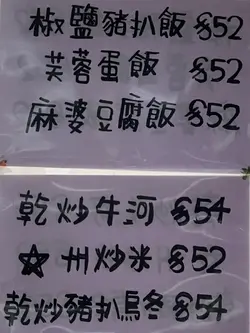 椒鹽豬扒飯 $52
芙蓉蛋飯 $52
麻婆豆腐飯 $52
乾炒牛河 $54
☆州炒米 $52
乾炒豬扒烏冬 $54